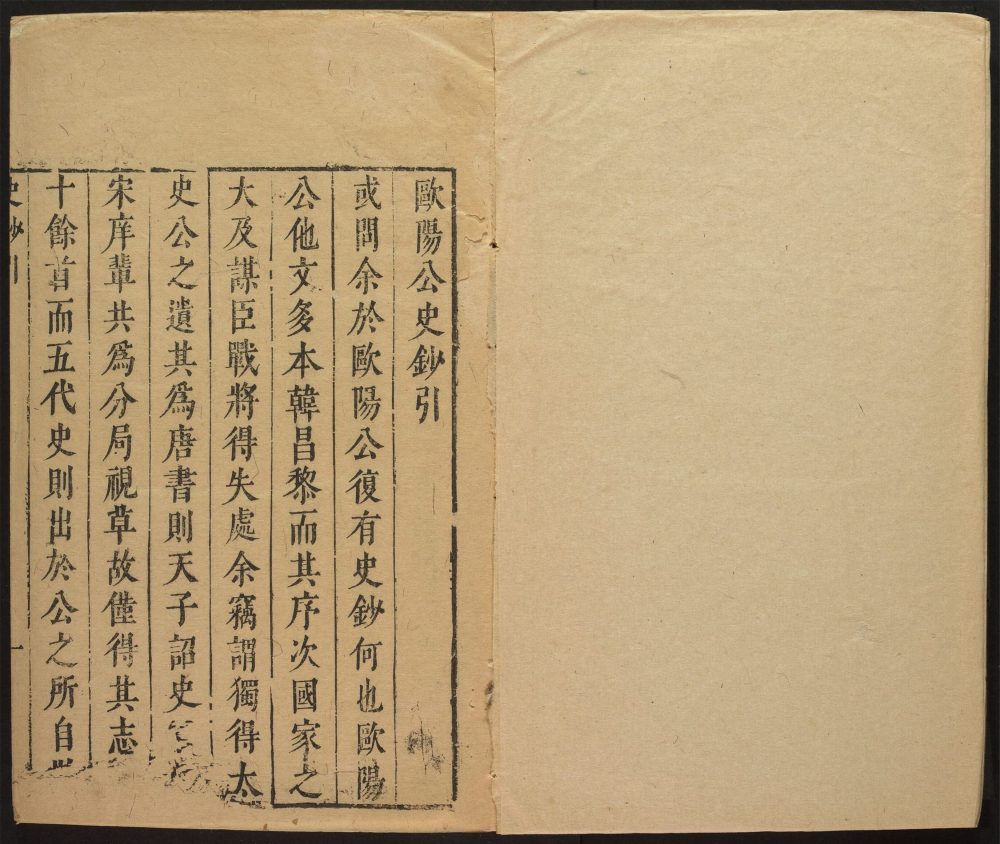 歐陽公史鈔引
或問余於歐陽公復有史鈔何也歐陽
公他文多本韓昌黎而其序次國家之
大及謀臣戰將得失處余竊謂獨得太
史公之遺其爲唐書則天子詔史
宋庠輩共爲分局視草故僅得其志
十餘首而五代史則出於公之所自
史鈔引
一